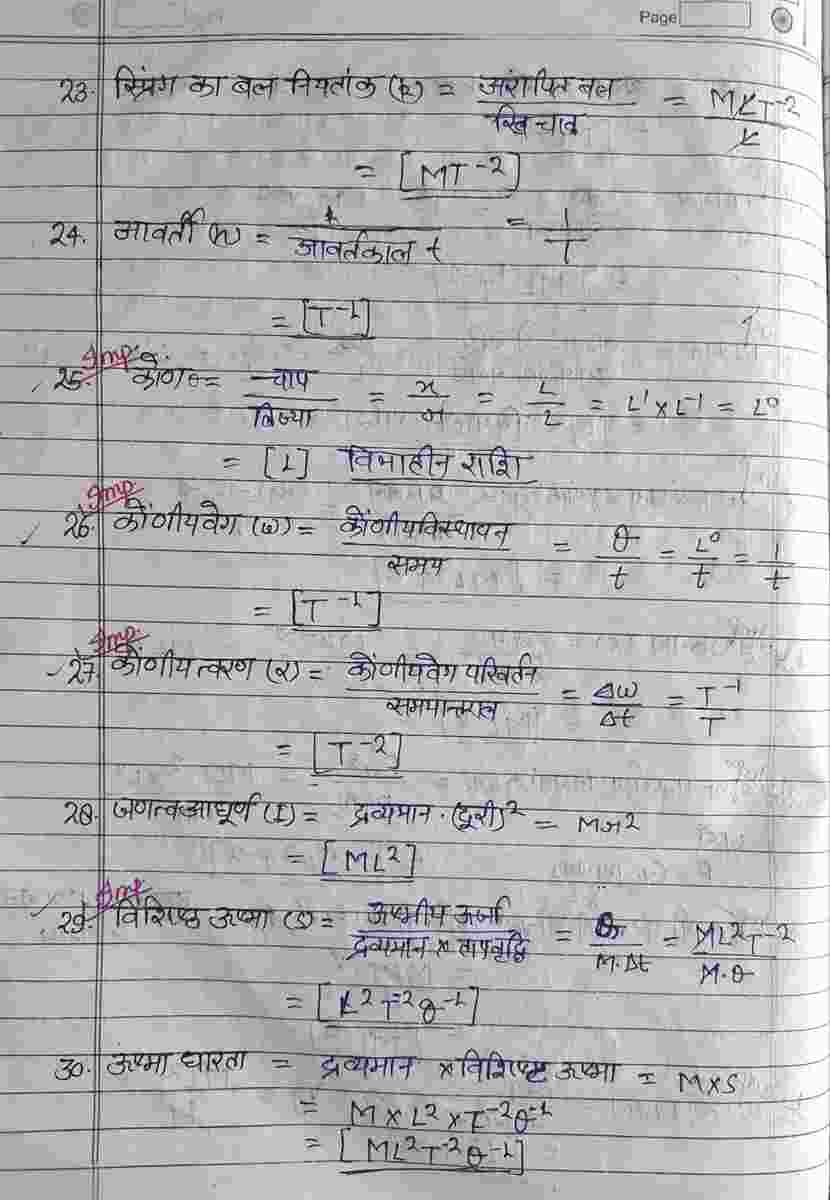 Page
23. स्प्रिंग का बल नियतांक (k) = आरोपित बल / खिंचाव = MLT⁻² / L
= [MT⁻²]
24. आवर्ती (n) = 1 / आवर्तकाल t = 1 / T
= [T⁻¹]
Imp.
25. कोंण θ = चाप / त्रिज्या = x / r = L / L = L¹ × L⁻¹ = L⁰
= [1] विमाहीन राशि
Imp.
26. कोंणीयवेग (ω) = कोंणीयविस्थापन / समय = θ / t = L⁰ / t = 1 / t
= [T⁻¹]
Imp.
27. कोंणीय त्वरण (α) = कोंणीयवेग परिवर्तन / समयान्तराल = Δω / Δt = T⁻¹ / T
= [T⁻²]
28. जणत्व आघूर्ण (I) = द्रव्यमान · (दूरी)² = Mr²
= [ML²]
Imp
29. विशिष्ठ ऊष्मा (s) = ऊष्मीय ऊर्जा / द्रव्यमान × तापवृद्धि = Q / M·Δt = ML²T⁻² / M·θ
= [L²T⁻²θ⁻¹]
30. ऊष्मा धारता = द्रव्यमान × विशिष्ट ऊष्मा = M×S
= M × L² × T⁻²θ⁻¹
= [ML²T⁻²θ⁻¹]